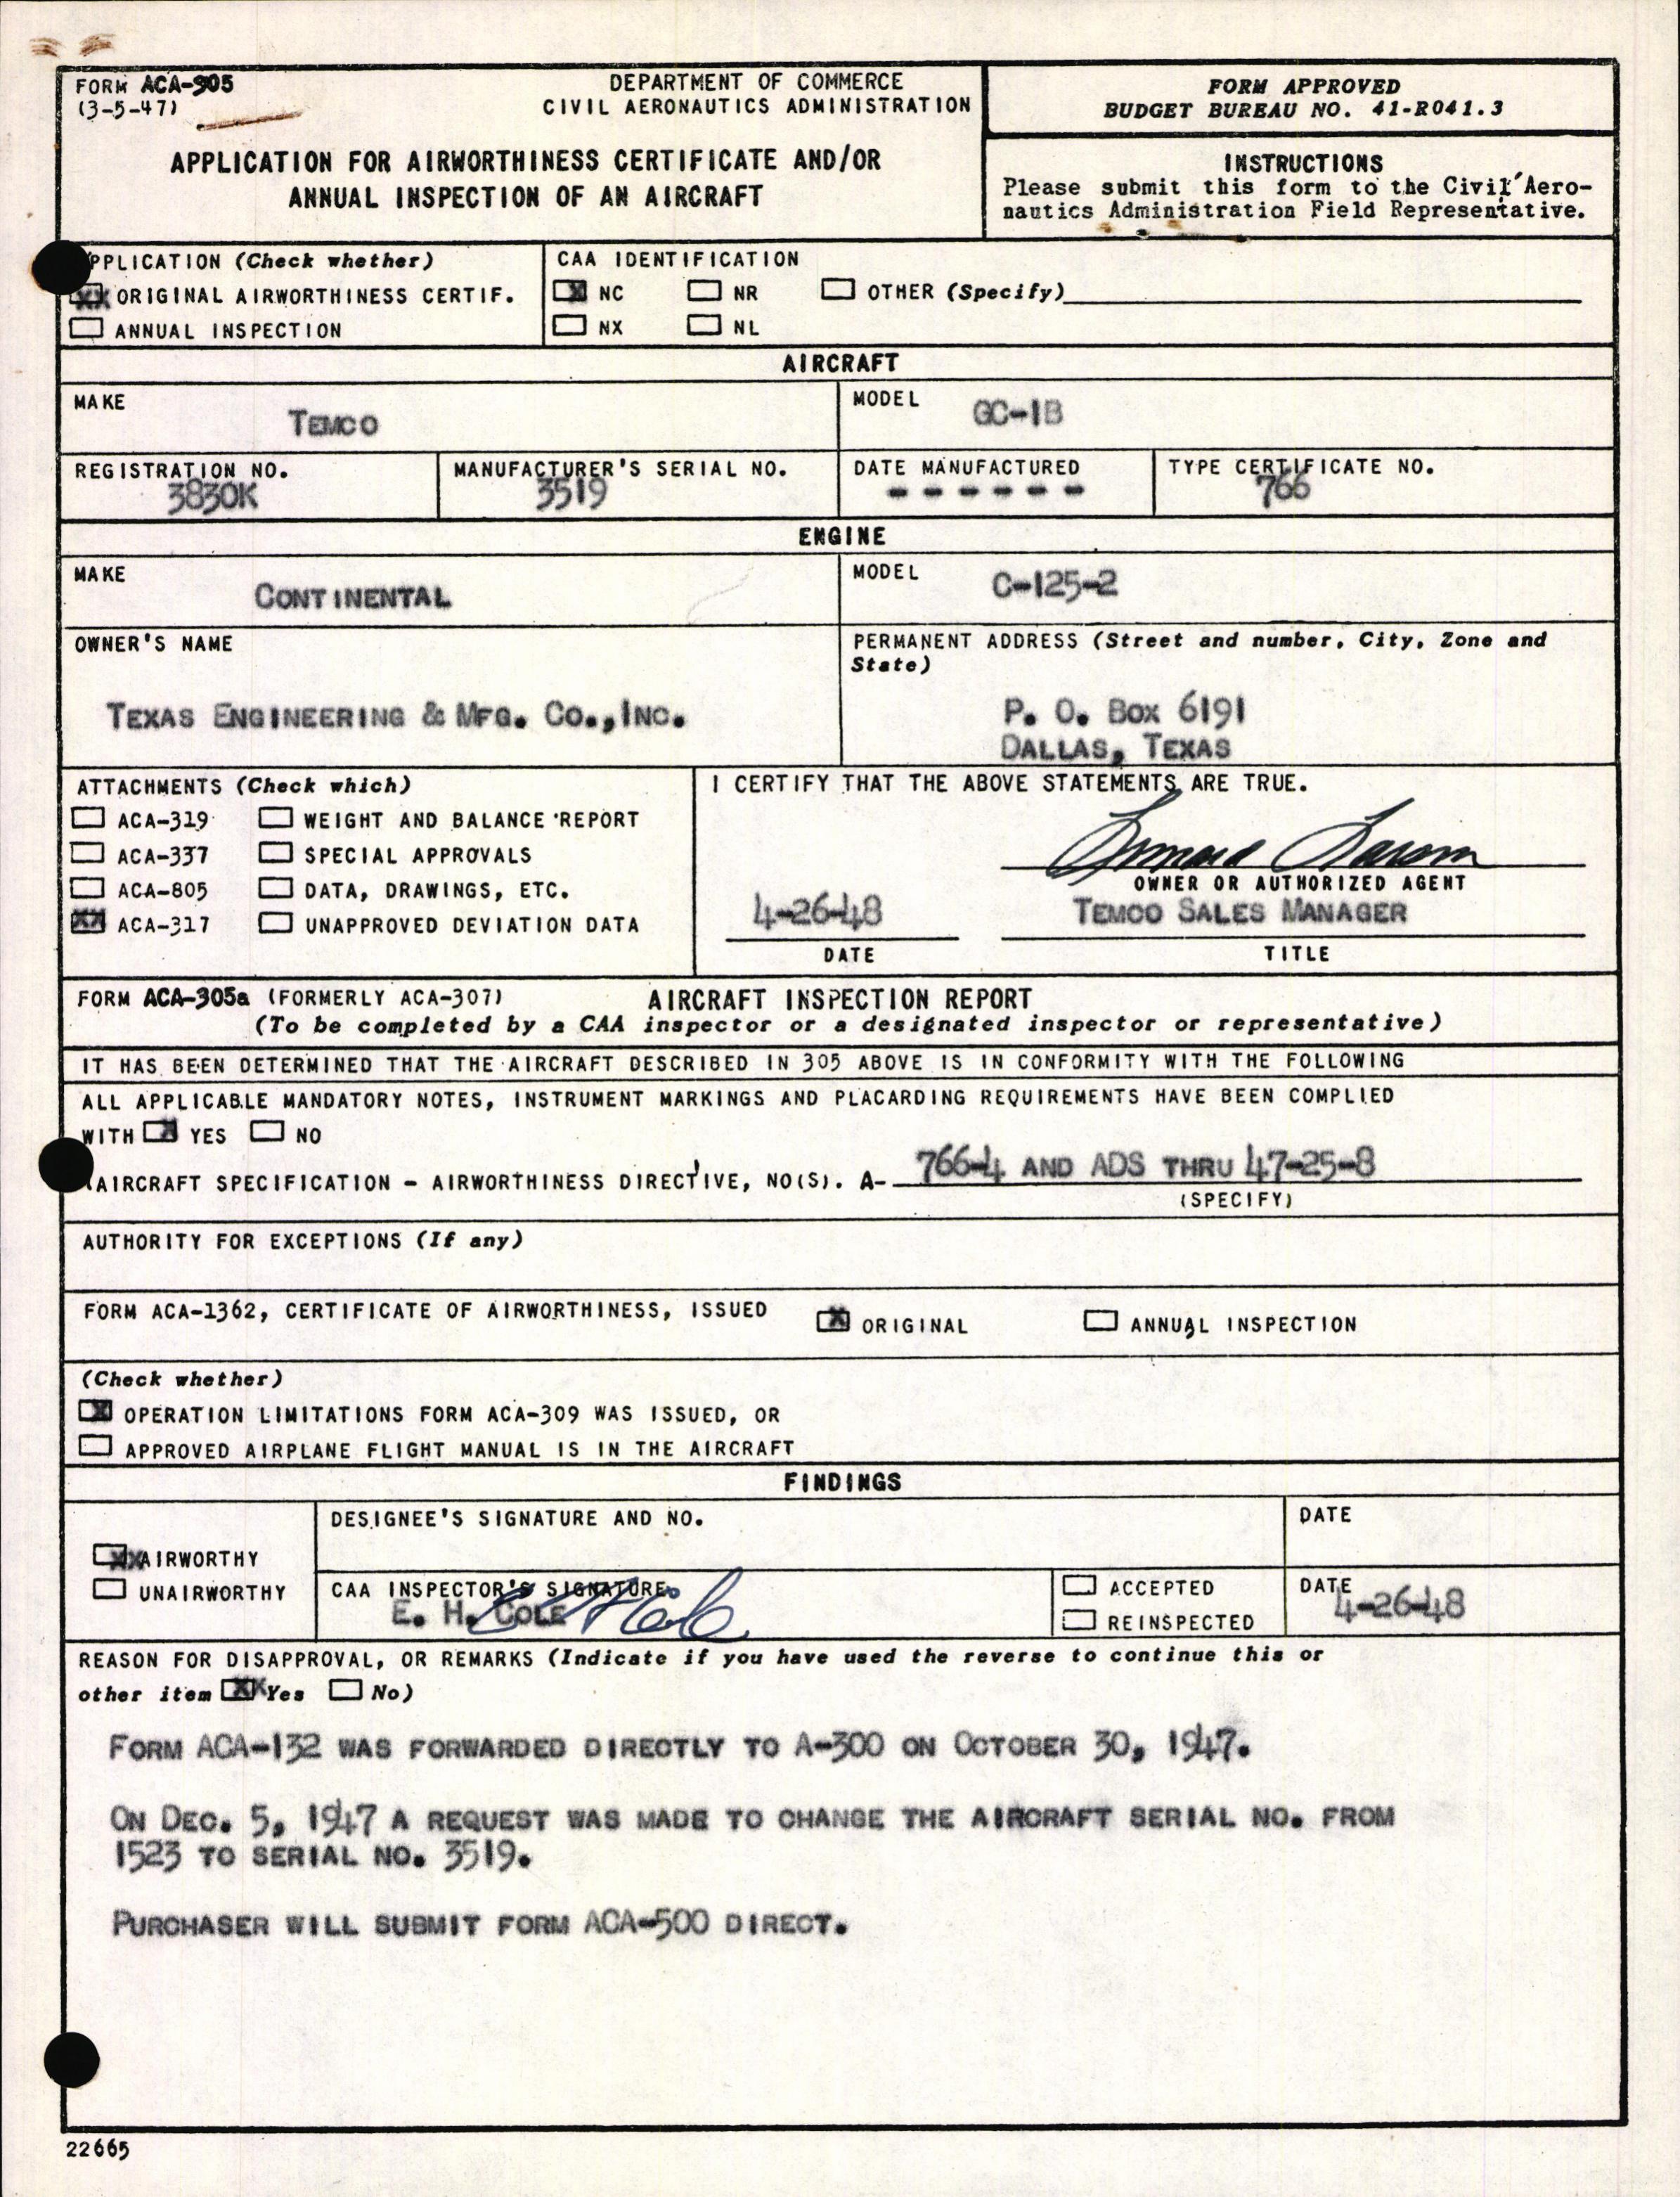 FORM ACA-305
(3-5-47)
DEPARTMENT OF COMMERCE
CIVIL AERONAUTICS ADMINISTRATION
APPLICATION FOR AIRWORTHINESS CERTIFICATE AND/OR
ANNUAL INSPECTION OF AN AIRCRAFT
FORM APPROVED
BUDGET BUREAU NO. 41-R041.3
INSTRUCTIONS
Please submit this form to the Civil Aero-
nautics Administration Field Representative.
APPLICATION (Check whether)
XX ORIGINAL AIRWORTHINESS CERTIF.
ANNUAL INSPECTION
CAA IDENTIFICATION
X NC NR OTHER (Specify)
NX NL
AIRCRAFT
MAKE
TEMCO
MODEL
GC-1B
REGISTRATION NO.
3830K
MANUFACTURER'S SERIAL NO.
3519
DATE MANUFACTURED
- - - - - -
TYPE CERTIFICATE NO.
766
ENGINE
MAKE
CONTINENTAL
MODEL
C-125-2
OWNER'S NAME
TEXAS ENGINEERING & MFG. CO.,INC.
PERMANENT ADDRESS (Street and number, City, Zone and
State)
P. O. BOX 6191
DALLAS, TEXAS
ATTACHMENTS (Check which)
ACA-319 WEIGHT AND BALANCE REPORT
ACA-337 SPECIAL APPROVALS
ACA-805 DATA, DRAWINGS, ETC.
XX ACA-317 UNAPPROVED DEVIATION DATA
I CERTIFY THAT THE ABOVE STATEMENTS ARE TRUE.
OWNER OR AUTHORIZED AGENT
4-26-48 TEMCO SALES MANAGER
DATE TITLE
FORM ACA-305a (FORMERLY ACA-307) AIRCRAFT INSPECTION REPORT
(To be completed by a CAA inspector or a designated inspector or representative)
IT HAS BEEN DETERMINED THAT THE AIRCRAFT DESCRIBED IN 305 ABOVE IS IN CONFORMITY WITH THE FOLLOWING
ALL APPLICABLE MANDATORY NOTES, INSTRUMENT MARKINGS AND PLACARDING REQUIREMENTS HAVE BEEN COMPLIED
WITH X YES NO
AIRCRAFT SPECIFICATION - AIRWORTHINESS DIRECTIVE, NO(S). A- 766-4 AND ADS THRU 47-25-8
(SPECIFY)
AUTHORITY FOR EXCEPTIONS (If any)
FORM ACA-1362, CERTIFICATE OF AIRWORTHINESS, ISSUED X ORIGINAL ANNUAL INSPECTION
(Check whether)
X OPERATION LIMITATIONS FORM ACA-309 WAS ISSUED, OR
APPROVED AIRPLANE FLIGHT MANUAL IS IN THE AIRCRAFT
FINDINGS
XX AIRWORTHY
UNAIRWORTHY
DESIGNEE'S SIGNATURE AND NO.
DATE
CAA INSPECTOR'S SIGNATURE
E. H. COLE
E H Cole
ACCEPTED
REINSPECTED
DATE
4-26-48
REASON FOR DISAPPROVAL, OR REMARKS (Indicate if you have used the reverse to continue this or
other item XX Yes No)
FORM ACA-132 WAS FORWARDED DIRECTLY TO A-300 ON OCTOBER 30, 1947.
ON DEC. 5, 1947 A REQUEST WAS MADE TO CHANGE THE AIRCRAFT SERIAL NO. FROM
1523 TO SERIAL NO. 3519.
PURCHASER WILL SUBMIT FORM ACA-500 DIRECT.
22665